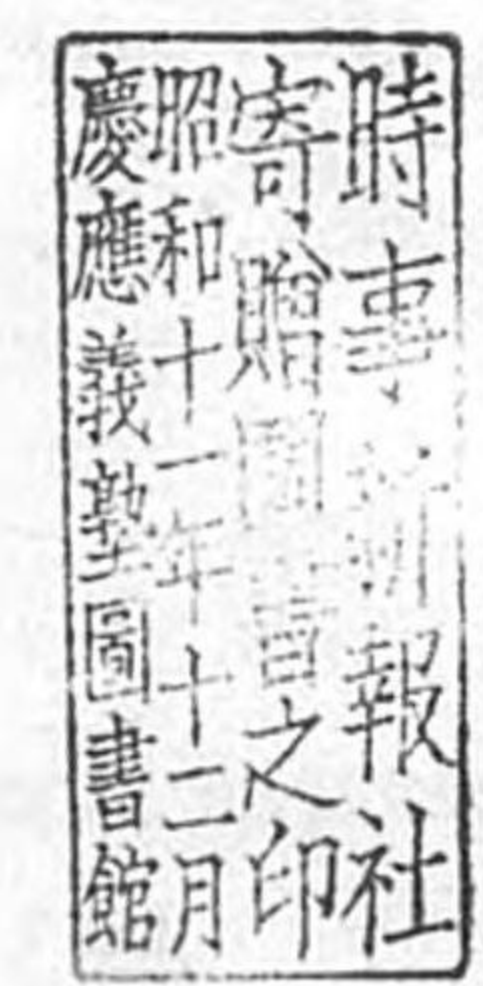 時事新報社
寄贈圖書之印
昭和十一年十二月
慶應義塾圖書館